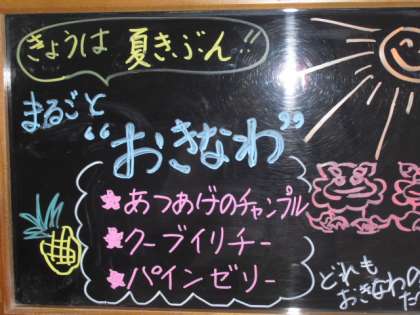 きょうは 夏きぶん!!
まるごと
“おきなわ”
★あつあげのチャンプル
★クーブイリチー
★パインゼリー
どれも
おきなわの
た